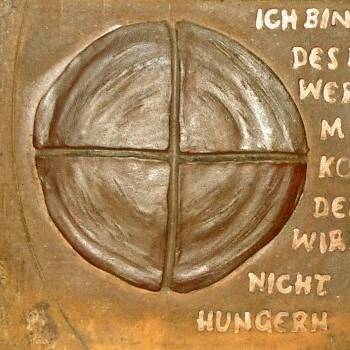 ICH BIN
DES
WER
M
KO
DE
WIR
NICHT
HUNGERN